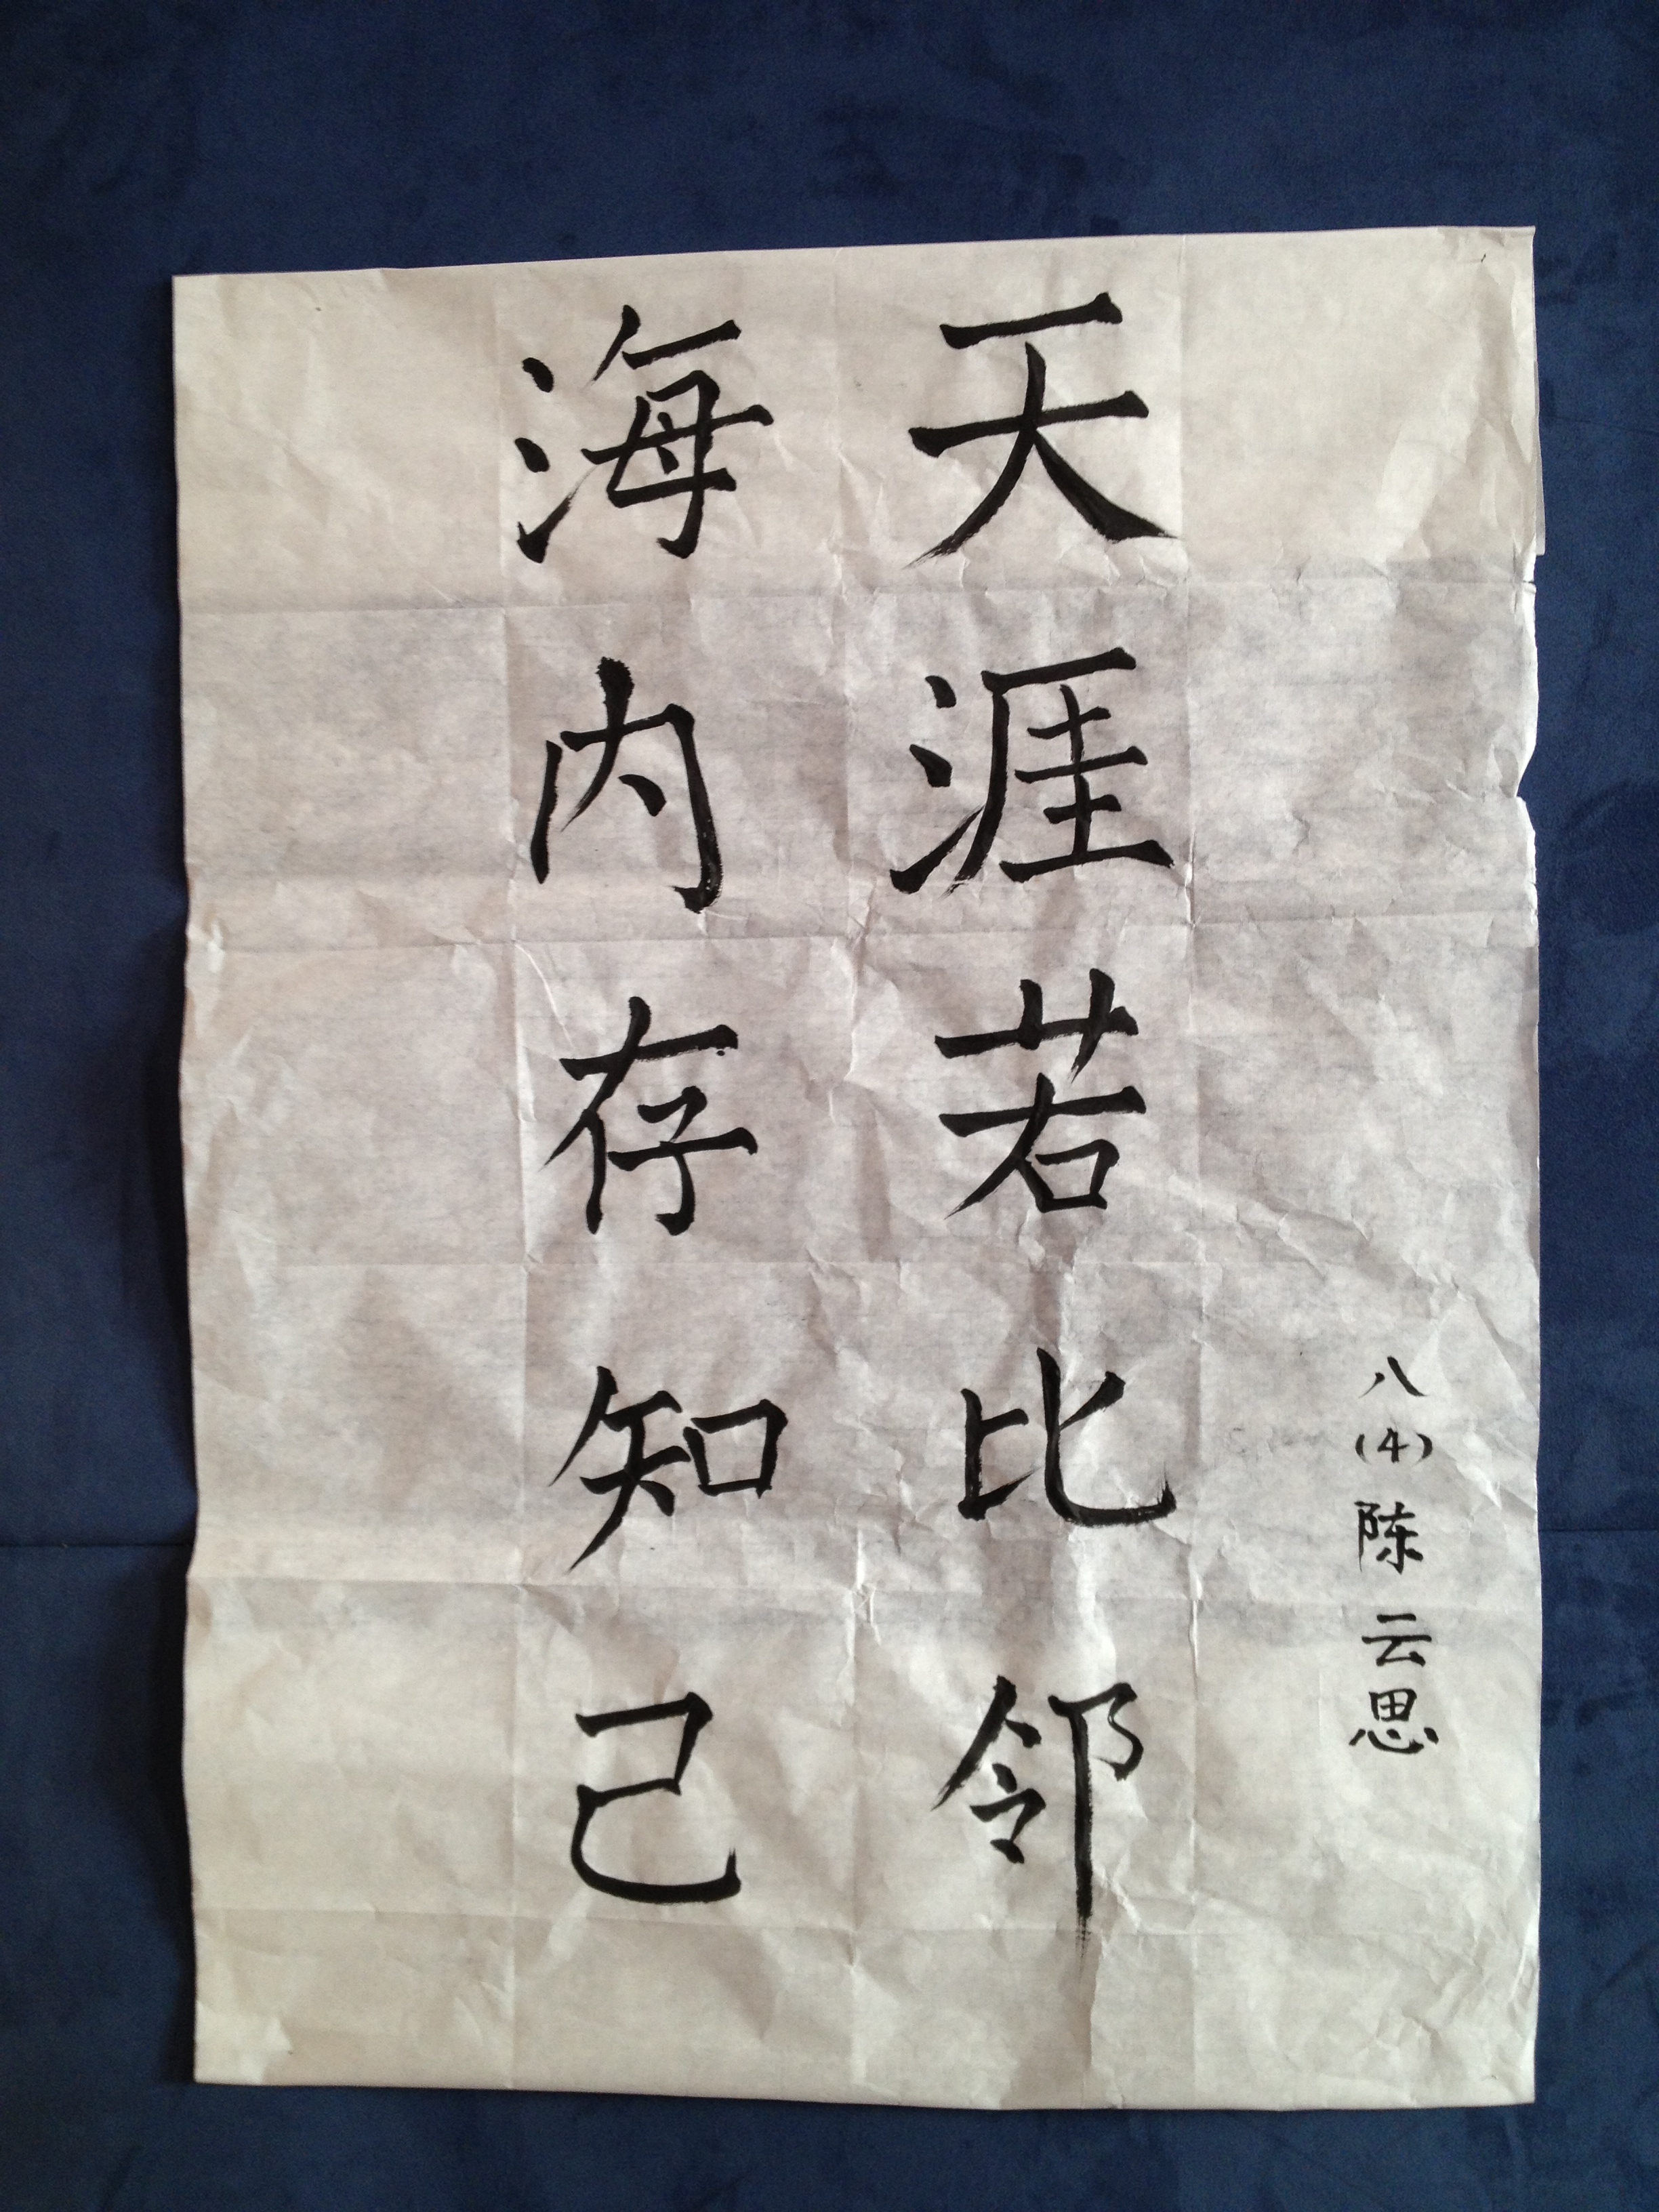 海内存知己
天涯若比邻
八(4)陈云思